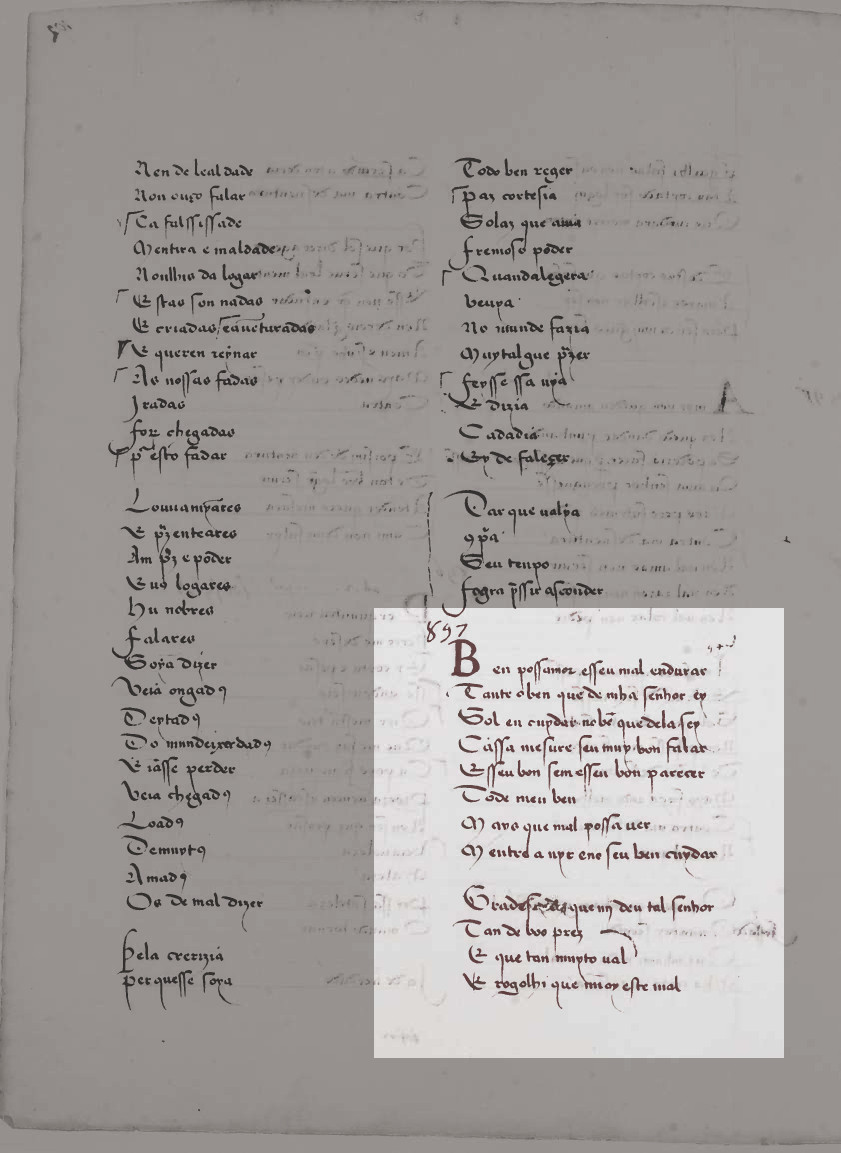 Nen de lealdade
Non ouço falar
Ca falssissade
Mentira e maldade
Nonlhis da logar
Estas son nadas
E criadas
E queren reynar
As nossas fadas
Iradas
for chegadas
esto fadar
Louuamỹares
E p̃zenteares
Am p̃z e poder
E us logares
Hu nobres
falares
Soya dizer
Veia
Deytadꝯ
Do
E iasse perder
Veia chegadꝯ
Loadꝯ
Demuytꝯ
Amadꝯ
Os de mal dizer
Pela crerizia
Per quesse soya
Todo ben reger
Paz cortesia
Solaz que auia
fremoso poder
Quandalegera
No munde fazia
Muytalgue p̃zer
E dizia
Cadadia
Ey de faleçer
Dar que ualya
Seu tenpo
897
Ben possamor esseu mal endurar
Tanto ben que de mha senhor ey
Sol en cuydar no bẽ que dela sey
Cassa mesure seu muy bon falar
Esseu bon sem esseu bon pareçer
Tode meu ben
Mays que mal possa uer
Mentro a uyr eno seu ben cuydar
que mj deu tal senhor
Tan de boo prez
E que tan muyto ual
E rogolhi que este mal